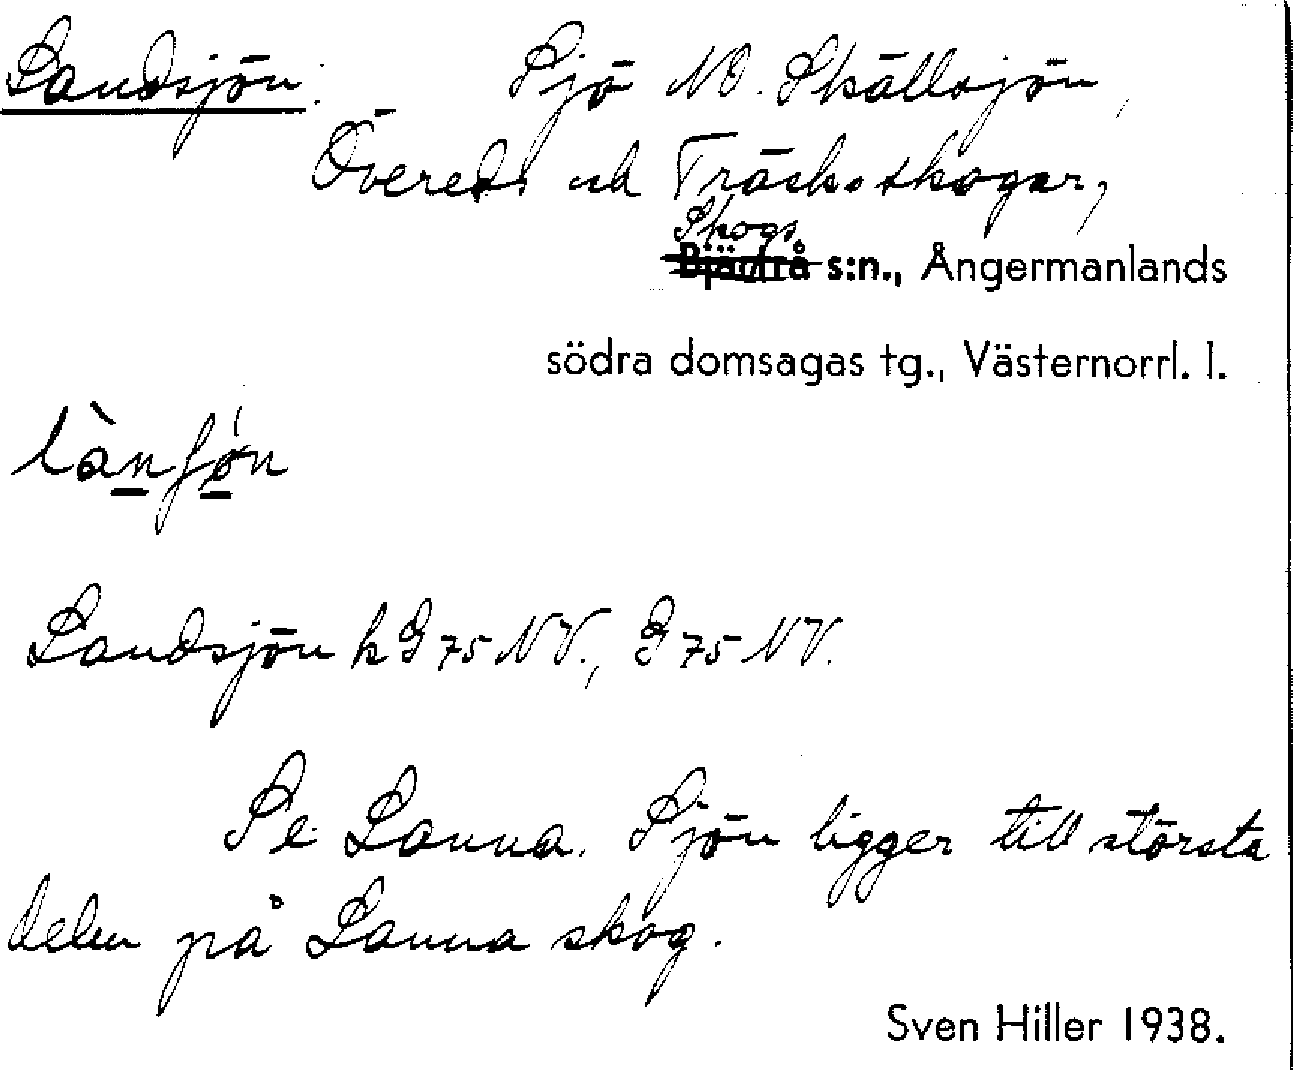 Landsjön. Sjö NO. Skällsjön,
Övereds och Träcks skogar,
Skogs
Bjärtrå s:n., Ångermanlands
södra domsagas tg., Västernorrl. l.
Landsjön k G 75 NV., G 75 NV.
Se Lanna. Sjön ligger till största
delen på Lanna skog.
Sven Hiller 1938.